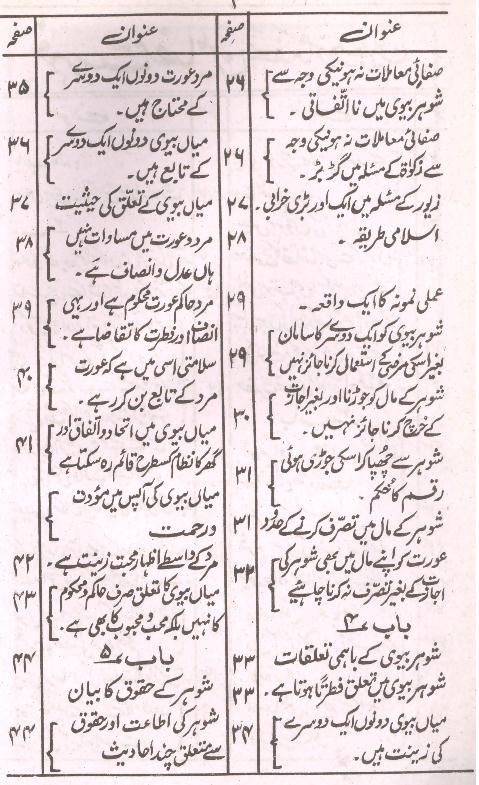 ۱
عنوان صفحہ
صفائی معاملات نہ ہونیکی وجہ سے
شوہر بیوی میں نا اتفاقی ۔ ۲۶
صفائی معاملات نہ ہونیکی وجہ
سے زکوٰۃ کے مسئلہ میں گڑبڑ ۔ ۲۶
زیور کے مسئلہ میں ایک اور بڑی خرابی ۔ ۲۷
اسلامی طریقہ ۔ ۲۸
عملی نمونہ کا ایک واقعہ ۔ ۲۹
شوہر بیوی کو ایک دوسرے کا سامان
بغیر اسکی مرضی کے استعمال کرنا جائز نہیں ۲۹
شوہر کے مال کو جوڑنا اور بغیر اجازت
کے خرچ کرنا جائز نہیں ۔ ۳۰
شوہر سے چھپا کر اسکی جوڑی ہوئی
رقم کا حکم ۔ ۳۱
شوہر کے مال میں تصرف کرنے کے حدود ۳۱
عورت کو اپنے مال میں بھی شوہر کی
اجازت کے بغیر تصرف نہ کرنا چاہئیے ۳۲
باب ۴
شوہر بیوی کے باہمی تعلقات ۳۳
شوہر بیوی میں تعلق فطرتاً ہوتا ہے ۔ ۳۳
میاں بیوی دونوں ایک دوسرے
کی زینت ہیں ۔ ۳۴
عنوان صفحہ
مرد عورت دونوں ایک دوسرے
کے محتاج ہیں ۔ ۳۵
میاں بیوی دونوں ایک دوسرے
کے تابع ہیں ۔ ۳۶
میاں بیوی کے تعلق کی حیثیت ۳۷
مرد و عورت میں مساوات نہیں
ہاں عدل و انصاف ہے ۔ ۳۸
مرد حاکم عورت محکوم ہے اور یہی
انصاف اور فطرت کا تقاضا ہے ۔ ۳۹
سلامتی اسی میں ہے کہ عورت
مرد کے تابع بن کر رہے ۔ ۴۰
میاں بیوی میں اتحاد و اتفاق اور
گھر کا نظام کسطرح قائم رہ سکتا ہے ۴۱
میاں بیوی کی آپس میں مودت
ورحمت
مرد کے واسطے اظہار محبت زینت ہے ۔ ۴۲
میاں بیوی کا تعلق صرف حاکم و محکوم
کا نہیں بلکہ محب و محبوب کا بھی ہے ۔ ۴۳
باب ۵ ۴۴
شوہر کے حقوق کا بیان
شوہر کی اطاعت اور حقوق
سے متعلق چند احادیث ۴۴